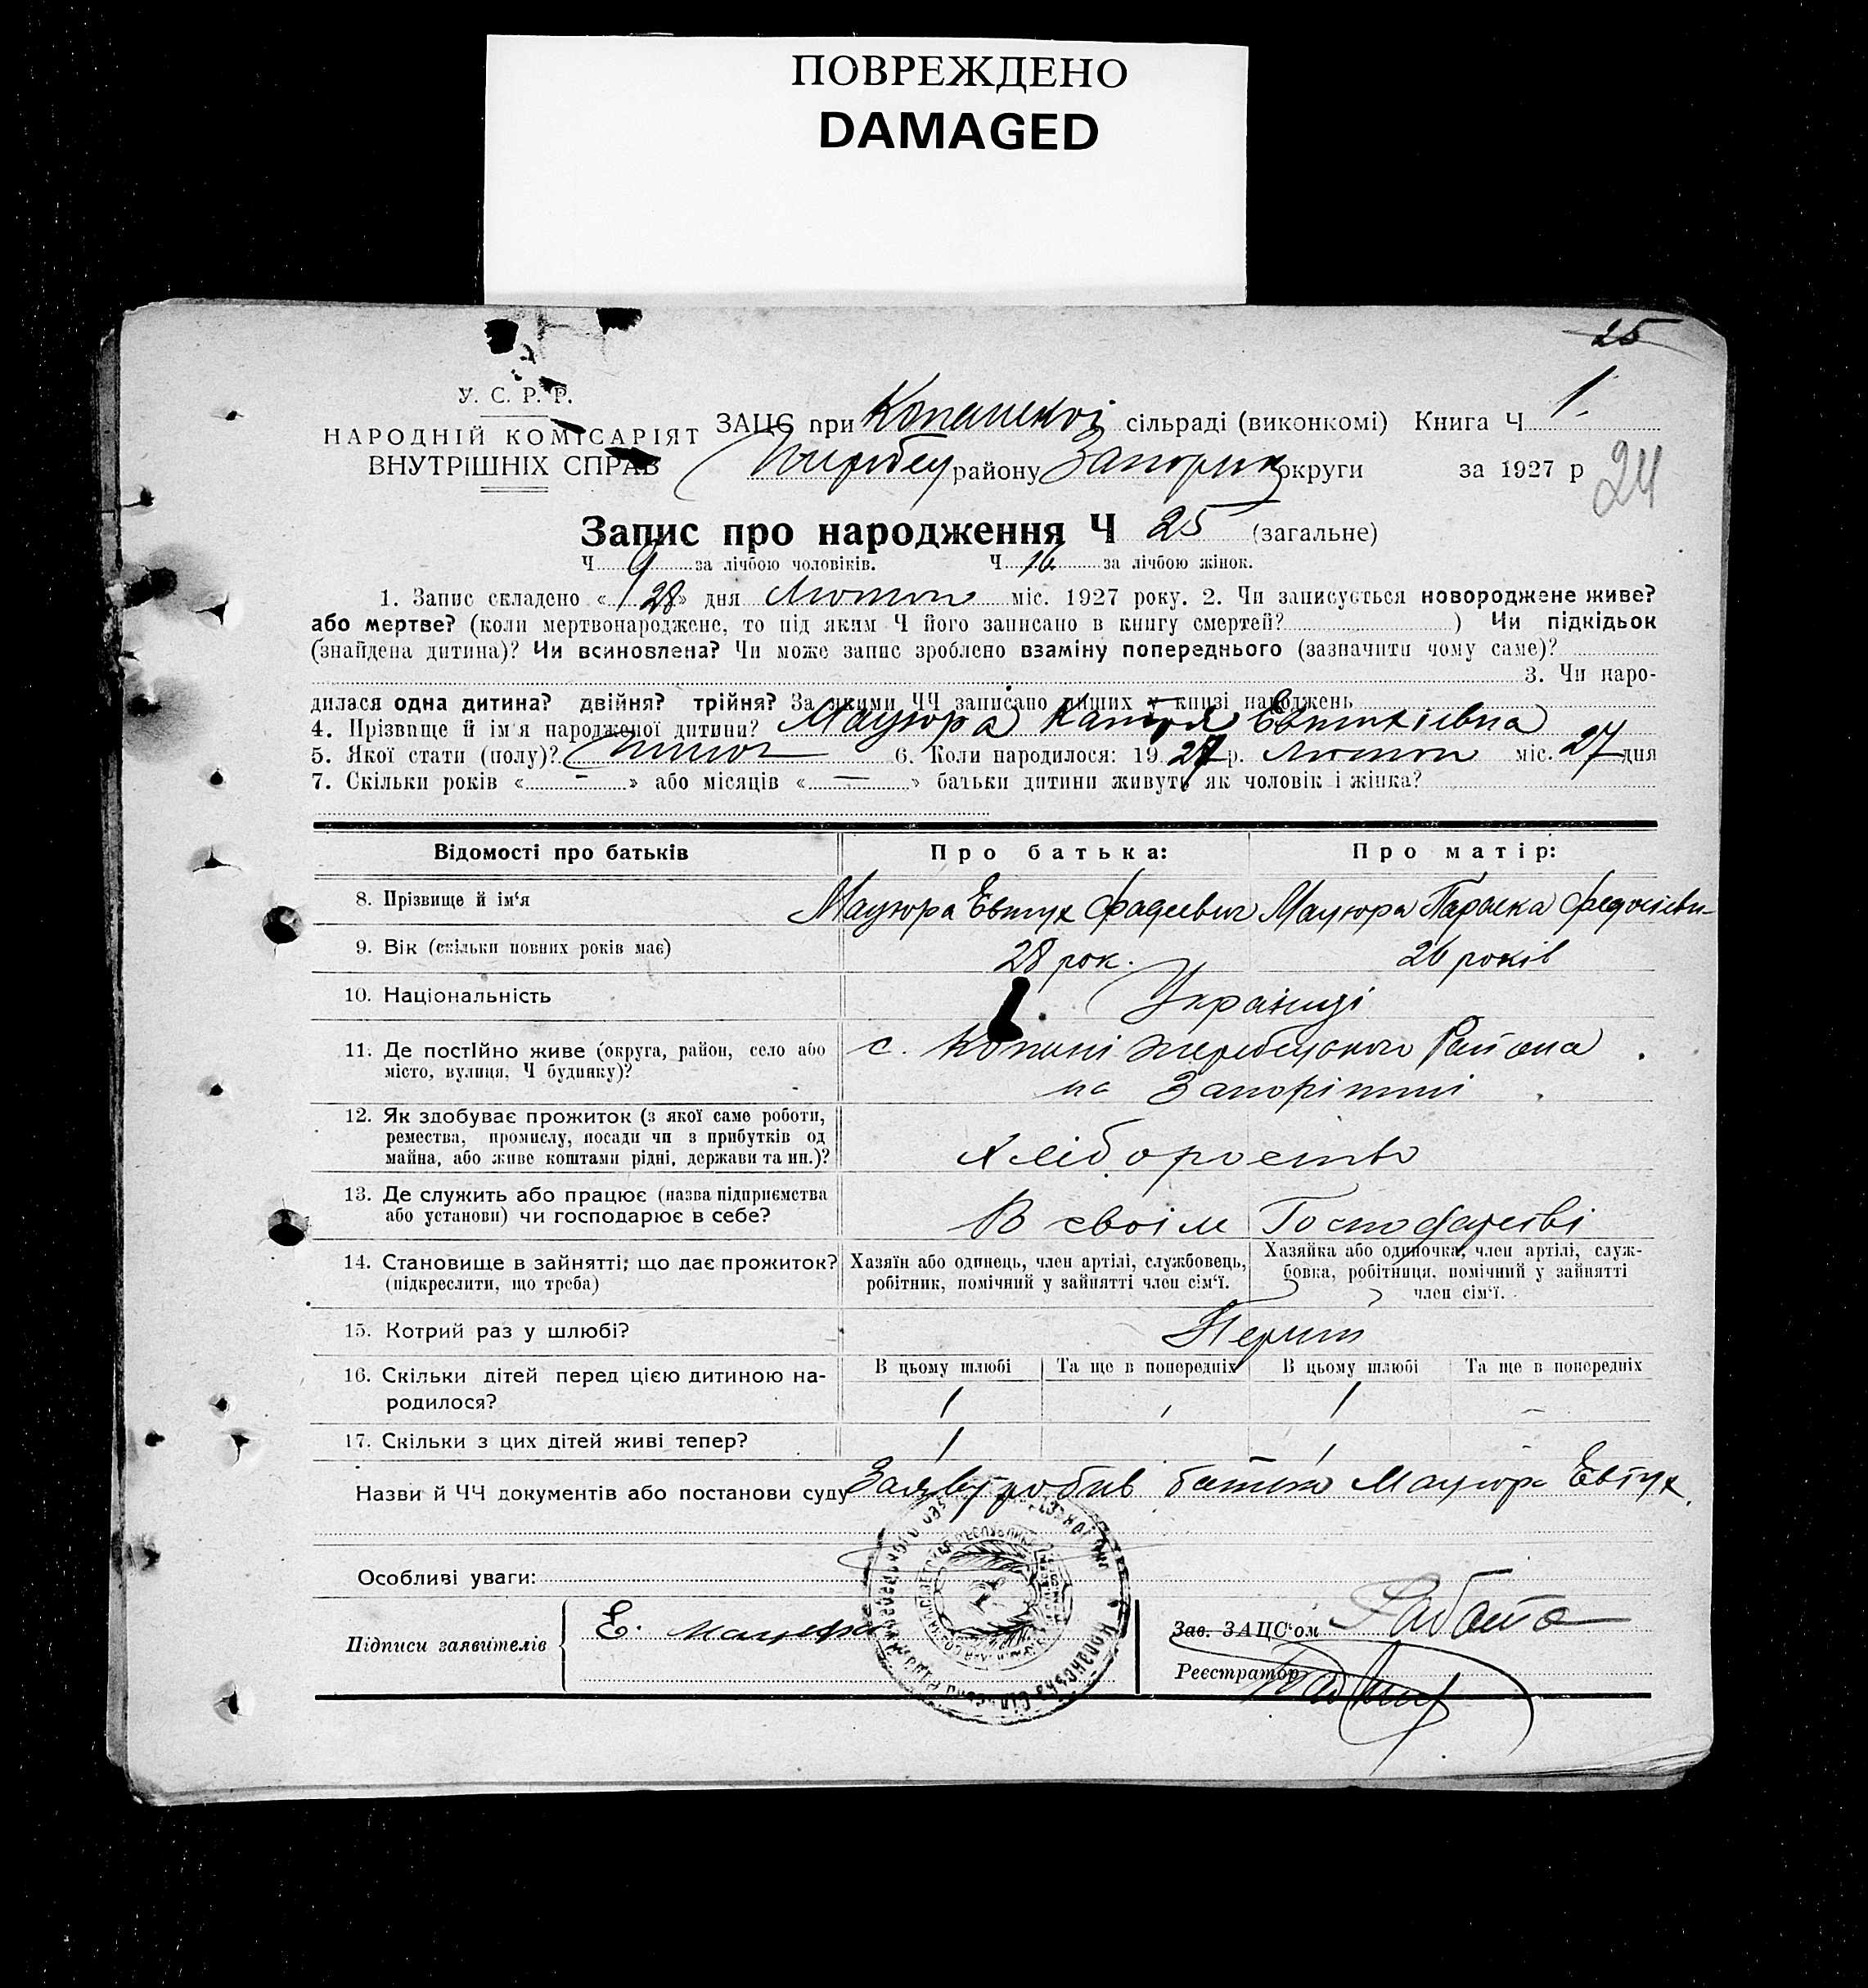 ПОВРЕЖДЕНО
DAMAGED
25
У. С. Р. Р.
НАРОДНІЙ КОМІСАРІЯТ
ВНУТРІШНІХ СПРАВ
ЗАЦС при Копанській сільраді (виконкомі) Книга Ч 1.
Жеребец району Запоріж округи за 1927 р
24
Запис про народження Ч 25 (загальне)
Ч 9 за лічбою чоловіків. Ч 16 за лічбою жінок.
1. Запис складено « 28 » дня Лютого міс. 1927 року. 2. Чи записується новороджене живе?
або мертве? (коли мертвонароджене, то під яким Ч його записано в книгу смертей? ) Чи підкідьок
(знайдена дитина)? Чи всиновлена? Чи може запис зроблено взаміну попереднього (зазначити чому саме)?
3. Чи наро-
дилася одна дитина? двійня? трійня? За якими ЧЧ записано инших у книзі народжень
4. Прізвище й ім'я народженої дитини? Мацюра Катря Евтихіевна
5. Якої стати (полу)? Жіноч 6. Коли народилося: 1927 р. Лютого міс. 27 дня
7. Скільки років « — » або місяців « — » батьки дитини живуть як чоловік і жінка?
Відомості про батьків Про батька: Про матір:
8. Прізвище й ім'я Мацюра Евтух Фадеевич Мацюра Параска Федосіевн
9. Вік (скільки повних років має) 28 рок. 26 років
10. Національність Українці
11. Де постійно живе (округа, район, село або місто, вулиця, Ч будинку)? с. Копані Жеребецького Района
на Запоріжжі
12. Як здобуває прожиток (з якої саме роботи,
ремества, промислу, посади чи з прибутків од
майна, або живе коштами рідні, держави та ин.)? Хліборобство
13. Де служить або працює (назва підприємства
або установи) чи господарює в себе? В своім Господарстві
14. Становище в зайнятті; що дає прожиток? Хазяїн або одинець, член артілі, службовець, Хазяйка або одиночка, член артілі, служ-
(підкреслити, що треба) робітник, помічний у зайнятті член сім'ї. бовка, робітниця, помічний у зайнятті
член сім'ї.
15. Котрий раз у шлюбі? Перший
16. Скільки дітей перед цією дитиною на- В цьому шлюбі Та ще в попередніх В цьому шлюбі Та ще в попередніх
родилося? 1 1 –
17. Скільки з цих дітей живі тепер? 1 1 –
Назви й ЧЧ документів або постанови суду Заяву робив батько Мацюра Евтух.
Особливі уваги:
Підписи заявителів Е. Мацюра
Зав. ЗАЦС'ом
Реєстратор
Копанська Сільська Рада